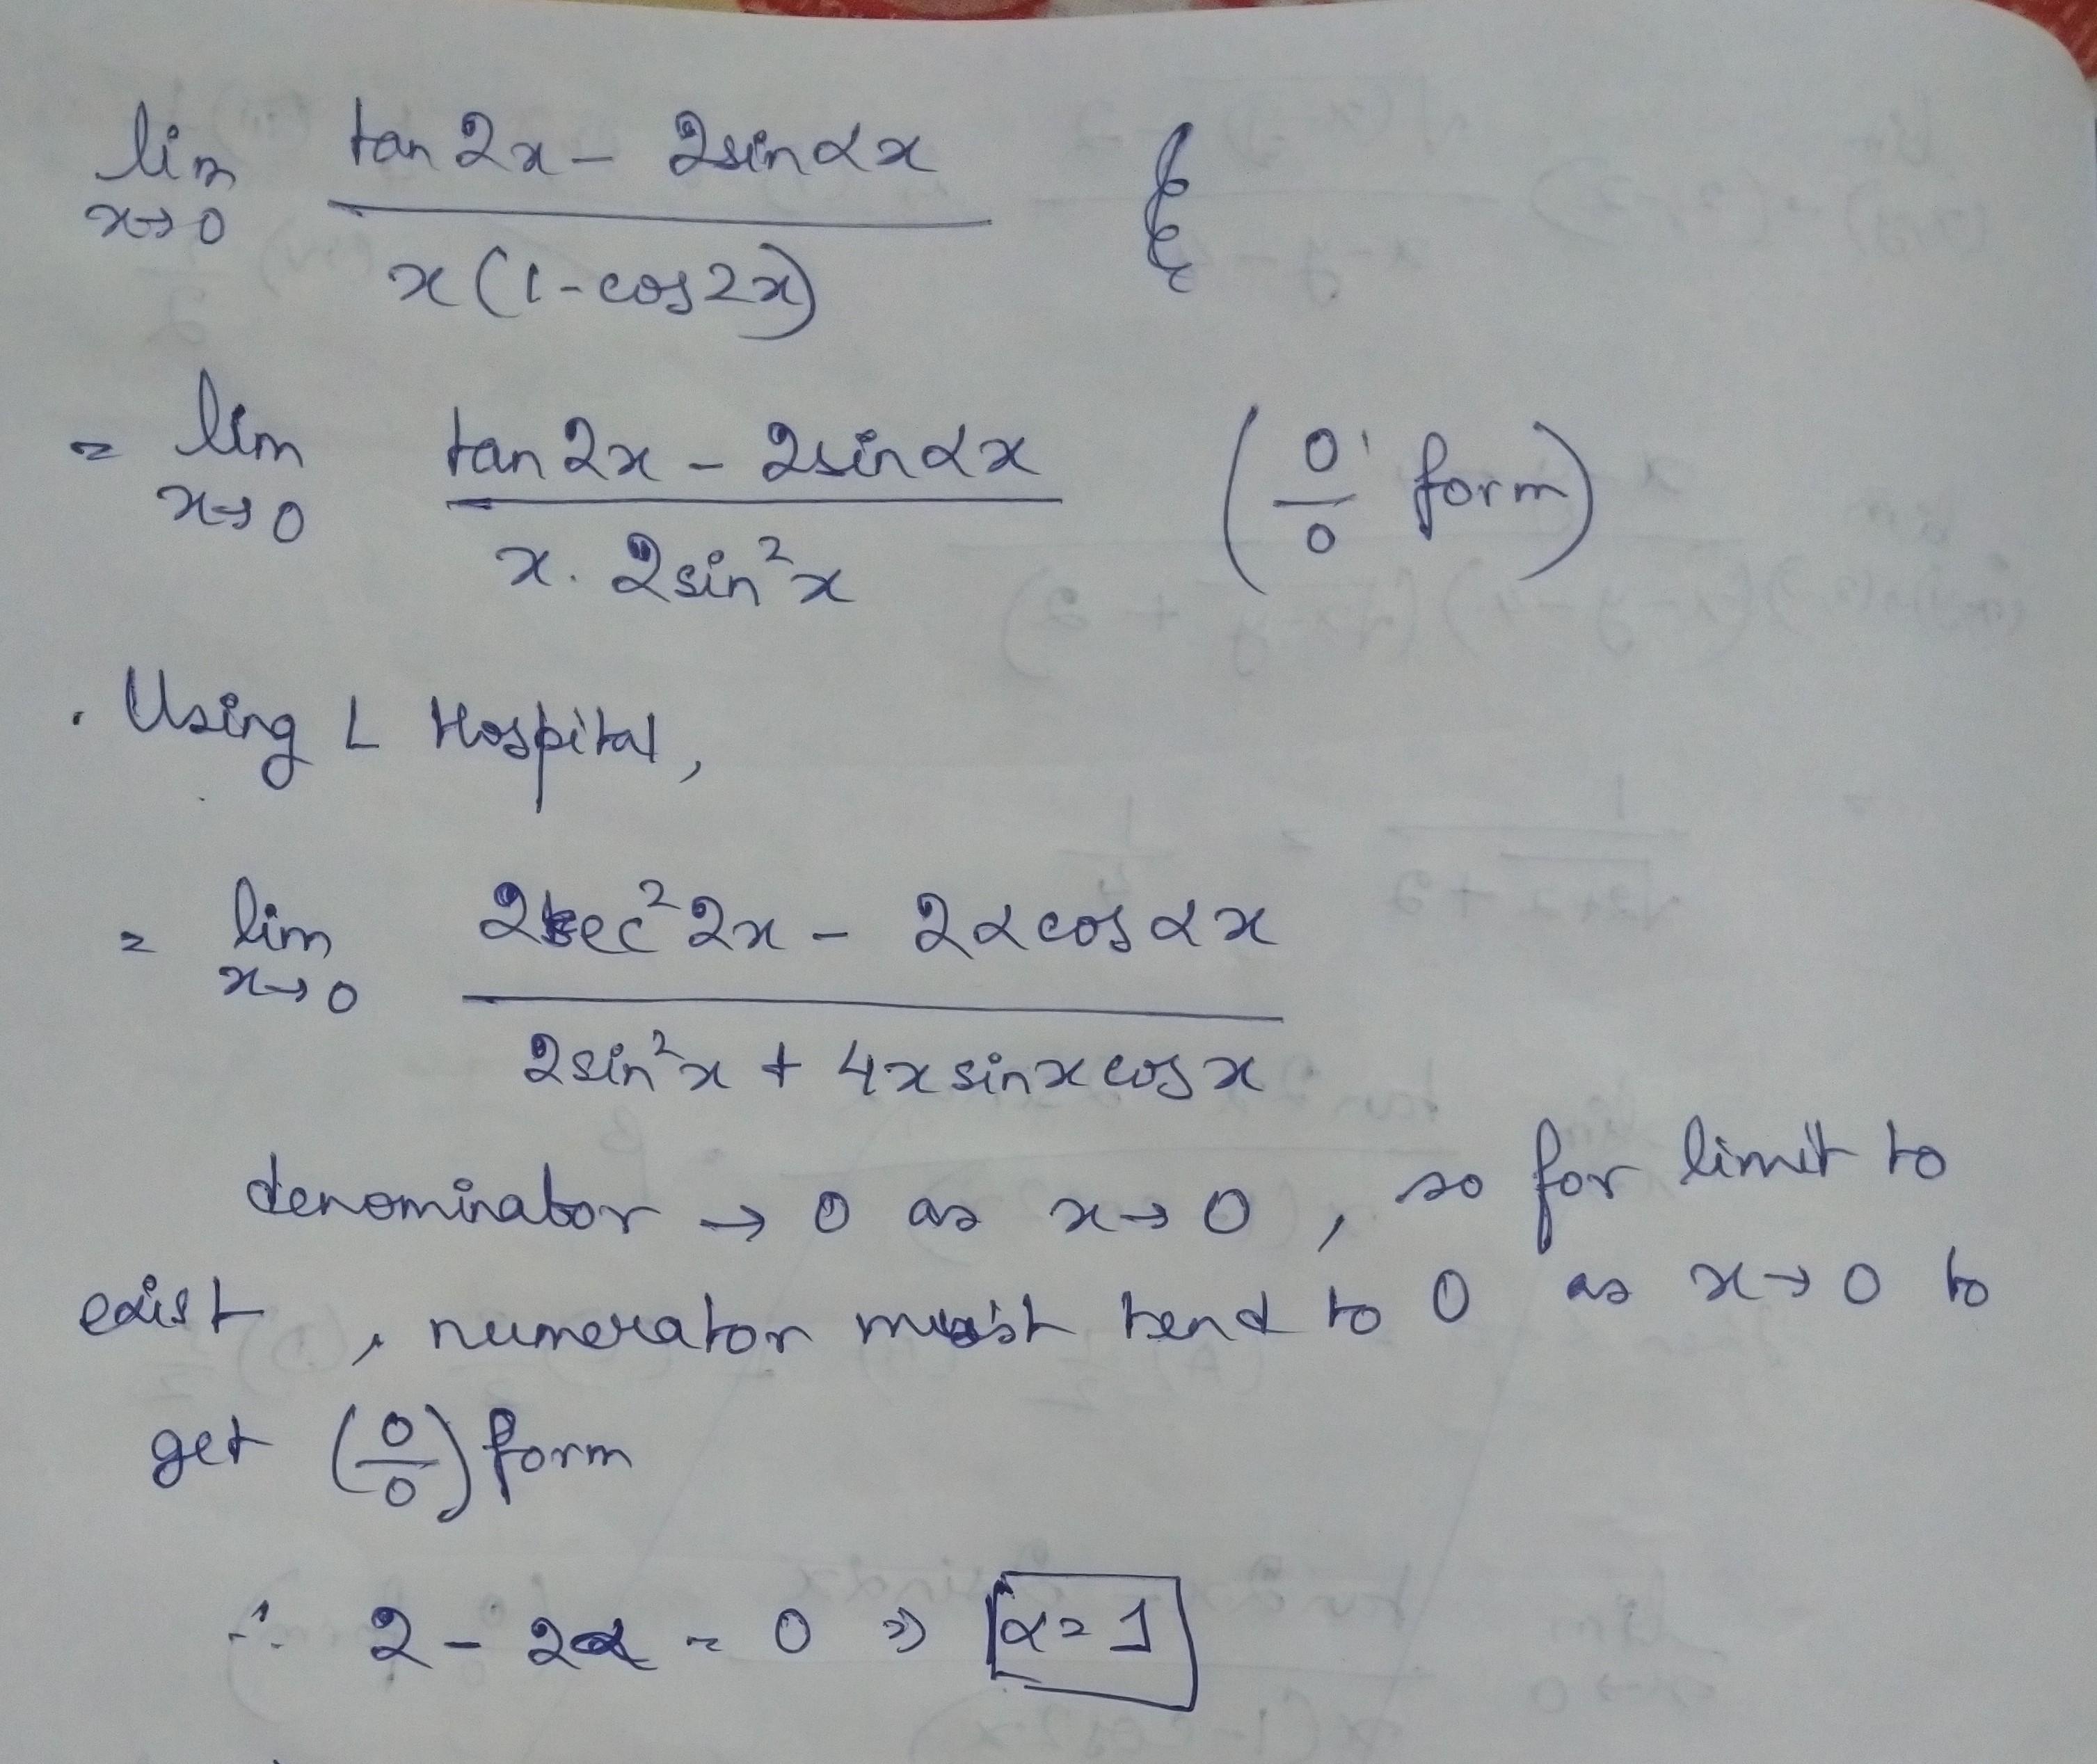 lim tan 2x - 2sin αx
x→0 x(1-cos2x)
= lim tan 2x - 2sin αx (0/0 form)
x→0 x. 2sin²x
. Using L Hospital,
= lim 2sec²2x - 2αcos αx
x→0 2sin²x + 4x sinx cosx
denominator → 0 as x→0, so for limit to
exist, numerator must tend to 0 as x→0 to
get (0/0) form
∴ 2 - 2α = 0 ⇒ α = 1